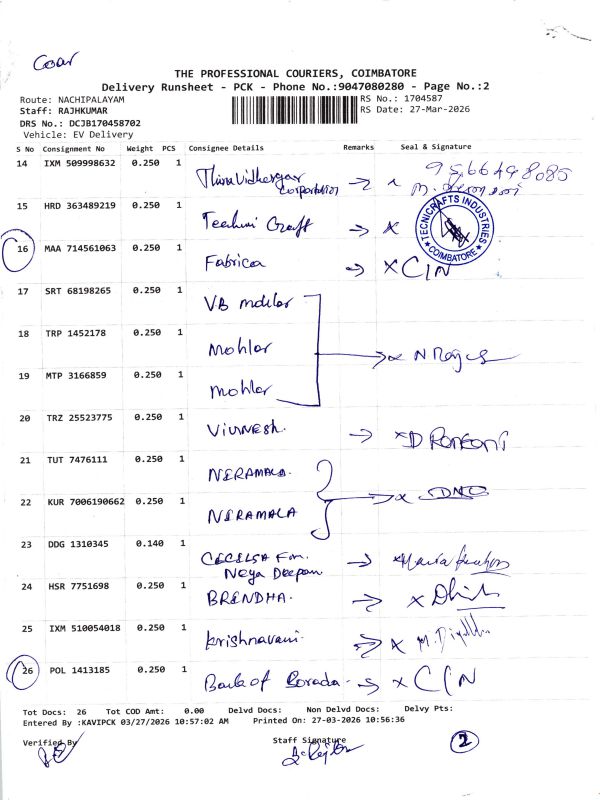 THE PROFESSIONAL COURIERS, COIMBATORE
Delivery Runsheet - PCK - Phone No.:9047080280 - Page No.:2
Route: NACHIPALAYAM
RS No.: 1704587
Staff: RAJHKUMAR
RS Date: 27-Mar-2026
DRS No.: DCJB170458702
Vehicle: EV Delivery
S No Consignment No Weight PCS Consignee Details Remarks Seal & Signature
14 IXM 509998632 0.250 1
Corporation
15 HRD 363489219 0.250 1 Craft x
TECNICRAFTS INDUSTRIES
COIMBATORE
16 MAA 714561063 0.250 1 Fabrica x
17 SRT 68198265 0.250 1 VB Mohlar
18 TRP 1452178 0.250 1 Mohlar x
19 MTP 3166859 0.250 1 Mohlar
20 TRZ 25523775 0.250 1 x
21 TUT 7476111 0.250 1 NERAMALA
22 KUR 7006190662 0.250 1 NERAMALA x
23 DDG 1310345 0.140 1 x Maria
24 HSR 7751698 0.250 1 BRENDHA. x
25 IXM 510054018 0.250 1 Krishnavani x
26 POL 1413185 0.250 1 Bank of Boroda x
Tot Docs: 26 Tot COD Amt: 0.00 Delvd Docs: Non Delvd Docs: Delvy Pts:
Entered By :KAVIPCK 03/27/2026 10:57:02 AM Printed On: 27-03-2026 10:56:36
Verified By Staff Signature
2